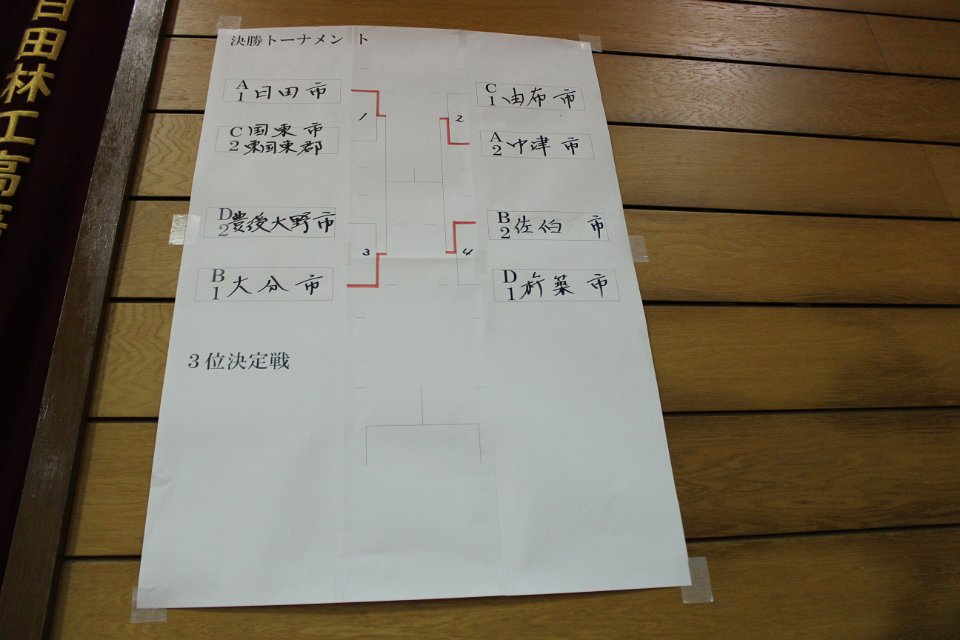 日田林工高等
決勝トーナメント
A1 日田市
C2 国東市
東国東郡
D2 豊後大野市
B1 大分市
1
3
2
4
C1 由布市
A2 中津市
B2 佐伯市
D1 杵築市
3位決定戦